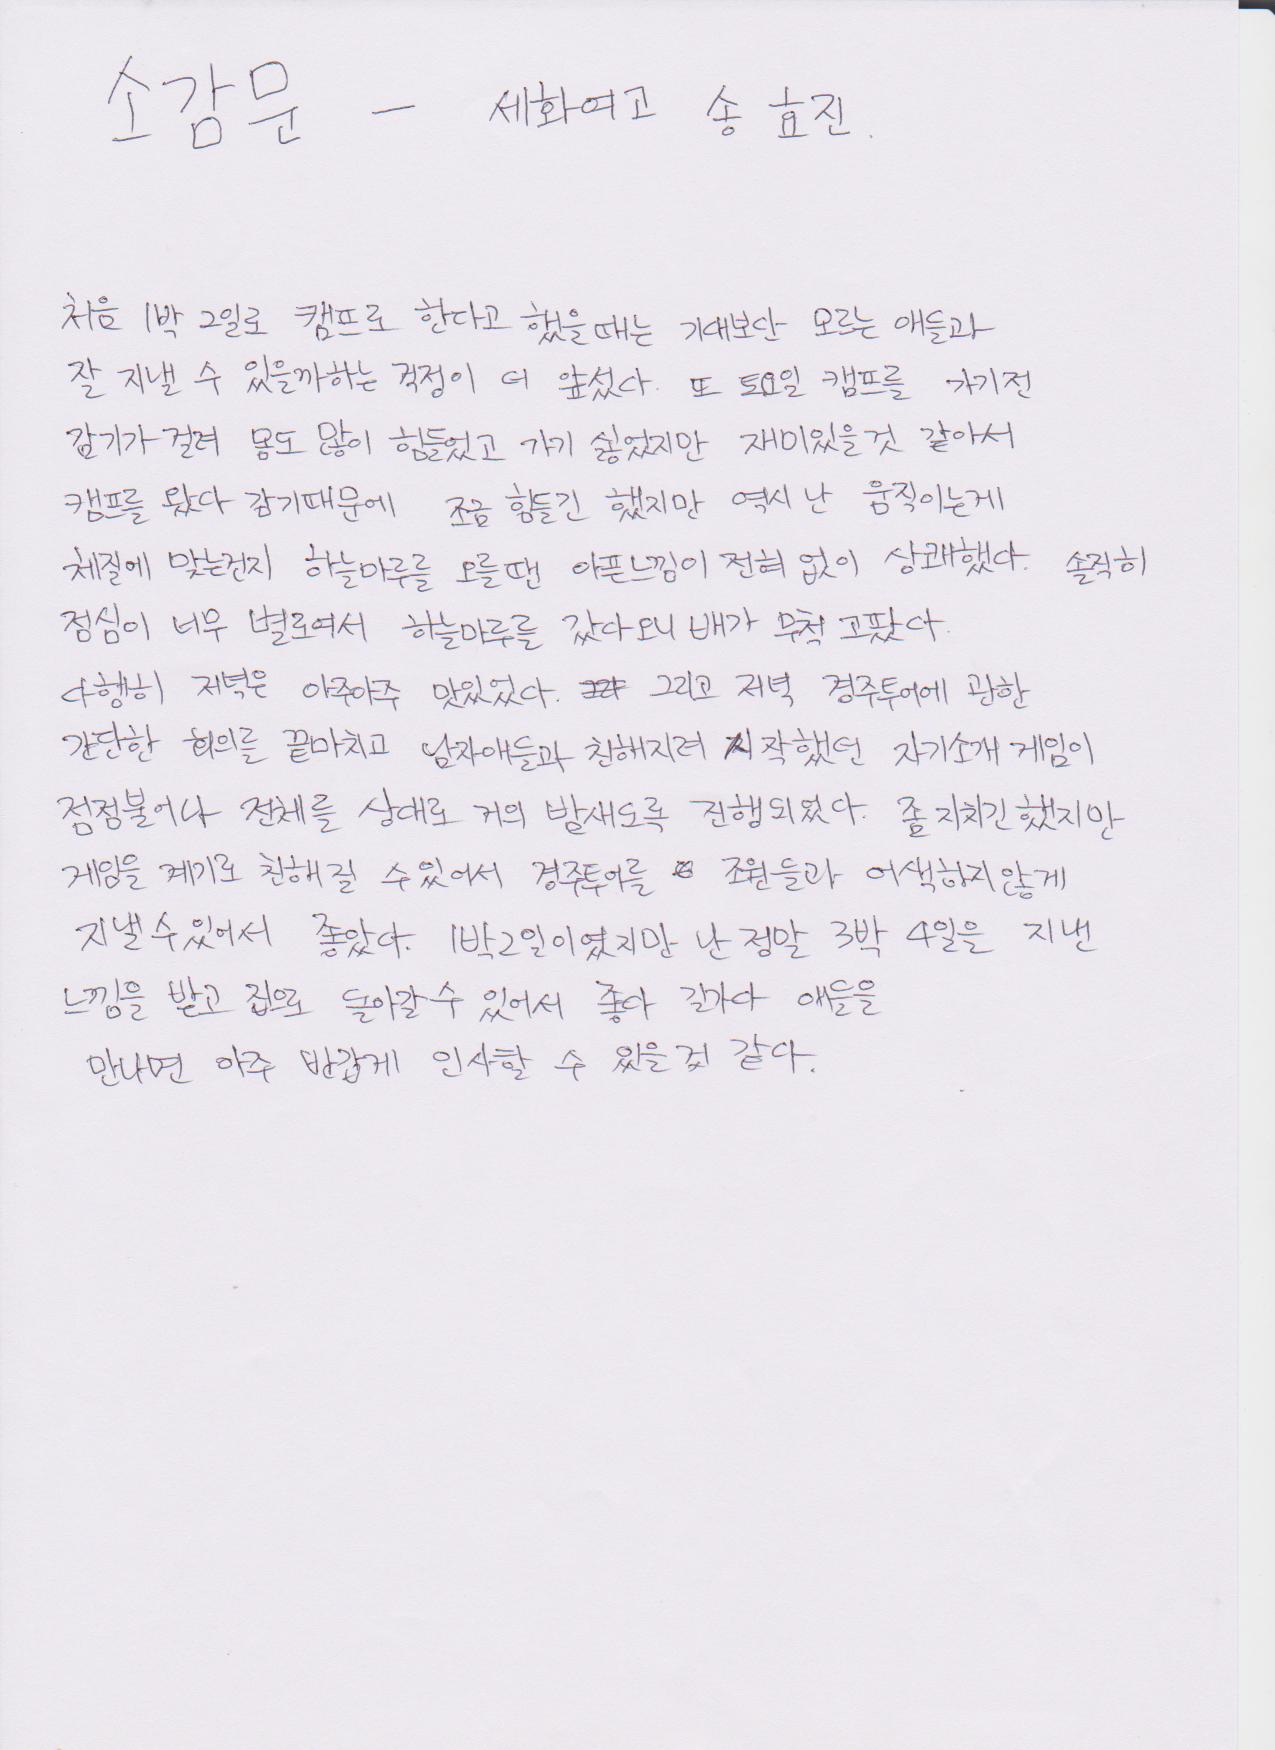 소감문 - 세화여고 송효진.
처음 1박 2일로 캠프로 한다고 했을때는 기대보단 모르는 애들과
잘 지낼 수 있을까하는 걱정이 더 앞섰다. 또 토요일 캠프를 가기전
감기가 걸려 몸도 많이 힘들었고 가기 싫었지만 재미있을것 같아서
캠프를 왔다 감기때문에 조금 힘들긴 했지만 역시 난 움직이는게
체질에 맞는건지 하늘마루를 오를땐 아픈느낌이 전혀 없이 상쾌했다. 솔직히
점심이 너무 별로여서 하늘마루를 갔다오니 배가 무척 고팠다.
다행히 저녁은 아주아주 맛있었다. 그리고 저녁 경주투어에 관한
간단한 회의를 끝마치고 남자애들과 친해지려 시작했던 자기소개 게임이
점점불어나 전체를 상대로 거의 밤새도록 진행되었다. 좀 지치긴했지만
게임을 계기로 친해질 수있어서 경주투어를 조원들과 어색하지않게
지낼수있어서 좋았다. 1박2일이였지만 난 정말 3박 4일을 지낸
느낌을 받고 집으로 돌아갈수 있어서 좋다 길가다 애들을
만나면 아주 반갑게 인사할 수 있을것 같다.